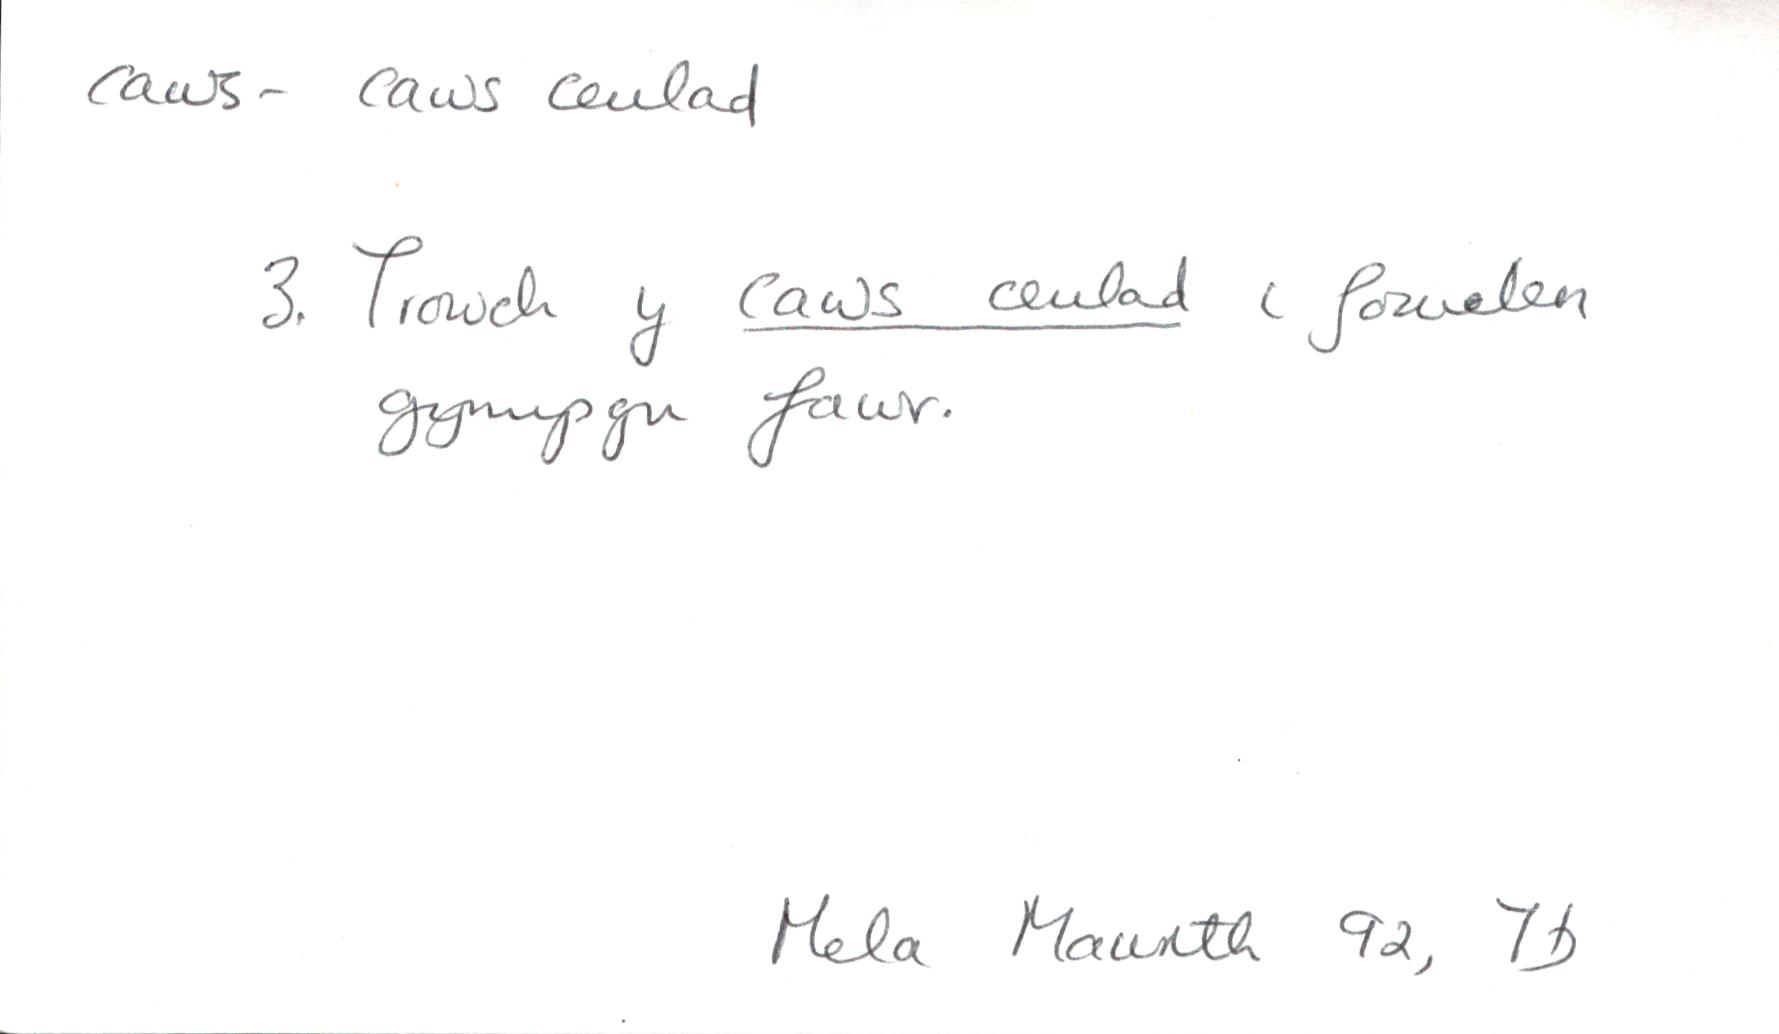 caws - caws ceulad
3. Trowch y caws ceulad i fowlen
gymysgu fawr.
Mela Mawrth 92, 7b